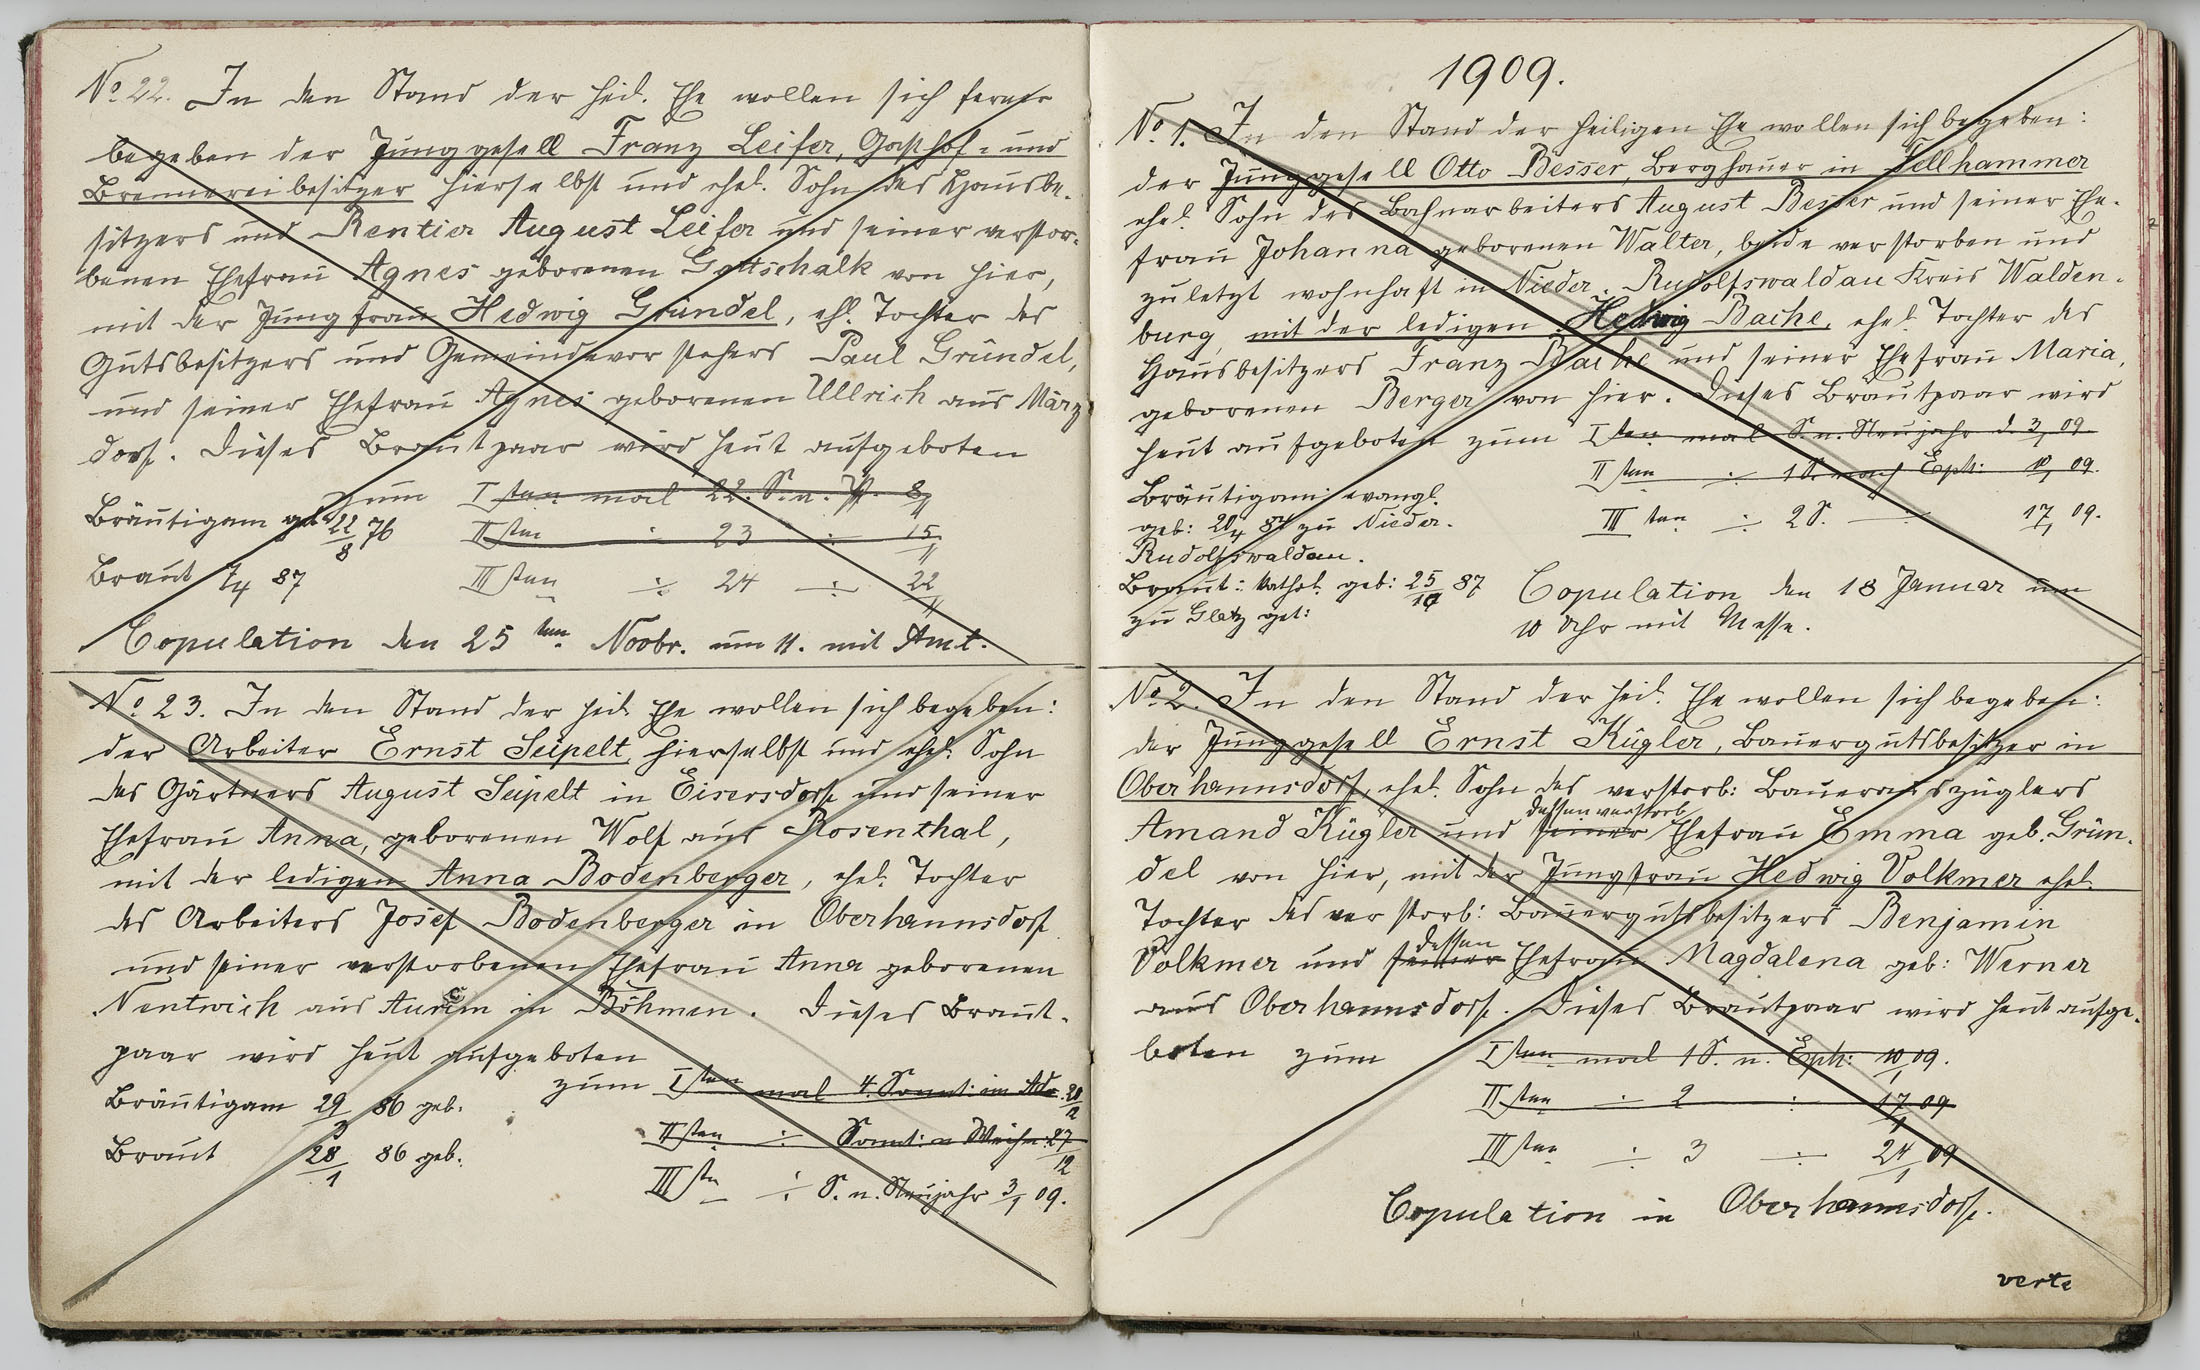 No 22. In den Stand der heil. Ehe wollen sich ferner
begeben der Junggesell Franz Leifer, Gasthof- und
Brennereibesitzer hierselbst und ehel. Sohn des Hausbe-
sitzers und Rentier August Leifer und seiner verstor-
benen Ehefrau Agnes geborenen Gottschalk von hier,
mit der Jungfrau Hedwig Gründel, ehl. Tochter des
Gutsbesitzers und Gemeindevorstehers Paul Gründel,
und seiner Ehefrau Agnes geborenen Ullrich aus März
dorf. Dieses Brautpaar wird heut aufgeboten
zum Iten mal 22. S. n. Pf. 8/11
Bräutigam geb. 22/8 76
IIten ÷ 23 ÷ 15/11
Braut 7/4 87
IIIten ÷ 24 ÷ 22/11
Copulation den 25ten Novbr. um 11. mit Amt.
No 23. In den Stand der heil. Ehe wollen sich begeben:
der Arbeiter Ernst Seipelt, hierselbst und ehel. Sohn
des Gärtners August Seipelt in Eisersdorf und seiner
Ehefrau Anna, geborenen Wolf aus Rosenthal,
mit der ledigen Anna Bodenberger, ehel. Tochter
des Arbeiters Josef Bodenberger in Oberhannsdorf
und seiner verstorbenen Ehefrau Anna geborenen
Nentwich aus in Böhmen. Dieses Braut-
paar wird heut aufgeboten
zum Iten mal 4. Sonnt: im Adv. 20/12
Bräutigam 29/3 86 geb.
IIten ÷ Sonnt: n Weihn. 27/12
Braut 28/1 86 geb.
IIIten ÷ S. n. Neujahr 3/1 09.
1909.
No. 1. In den Stand der heiligen Ehe wollen sich begeben:
der Junggesell Otto Besser, Berghauer in Fellhammer
ehel. Sohn des Bahnarbeiters August Besser und seiner Ehe-
frau Johanna geborenen Walter, beide verstorben und
zuletzt wohnhaft in Nieder-Rudolfswaldau Kreis Walden-
burg, mit der ledigen Hedwig Bache, ehel. Tochter des
Hausbesitzers Franz Bache und seiner Ehefrau Maria,
geborenen Berger von hier. Dieses Brautpaar wird
heut aufgeboten zum Iten mal S. n. Neujahr d. 3/1 09.
IIten ÷ 1 S. nach Eph: 10/1 09.
Bräutigam: evangl.
geb: 20/4 84 zu Nieder-
IIIten ÷ 2 S. ÷ 17/1 09.
Rudolfswaldau.
Braut: kathol. geb: 25/10 87
zu Glatz get:
Copulation den 18 Januar um
10 Uhr mit Messe.
No 2. In den Stand der heil. Ehe wollen sich begeben:
der Junggesell Ernst Kügler, Bauergutsbesitzer in
Oberhannsdorf, ehel. Sohn des verstorb: Bauerauszüglers
dessen verstorb
Amand Kügler und seiner Ehefrau Emma geb. Grün-
del von hier, mit der Jungfrau Hedwig Volkmer ehel.
Tochter des verstorb: Bauergutsbesitzers Benjamin
dessen
Volkmer und seiner Ehefrau Magdalena geb: Werner
aus Oberhannsdorf. Dieses Brautpaar wird heut aufge-
boten zum Iten mal 1 S. n. Eph: 10/1 09.
IIten ÷ 2 : 17/1 09
IIIten ÷ 3 ÷ 24/1 09
Copulation in Oberhannsdorf.
verte